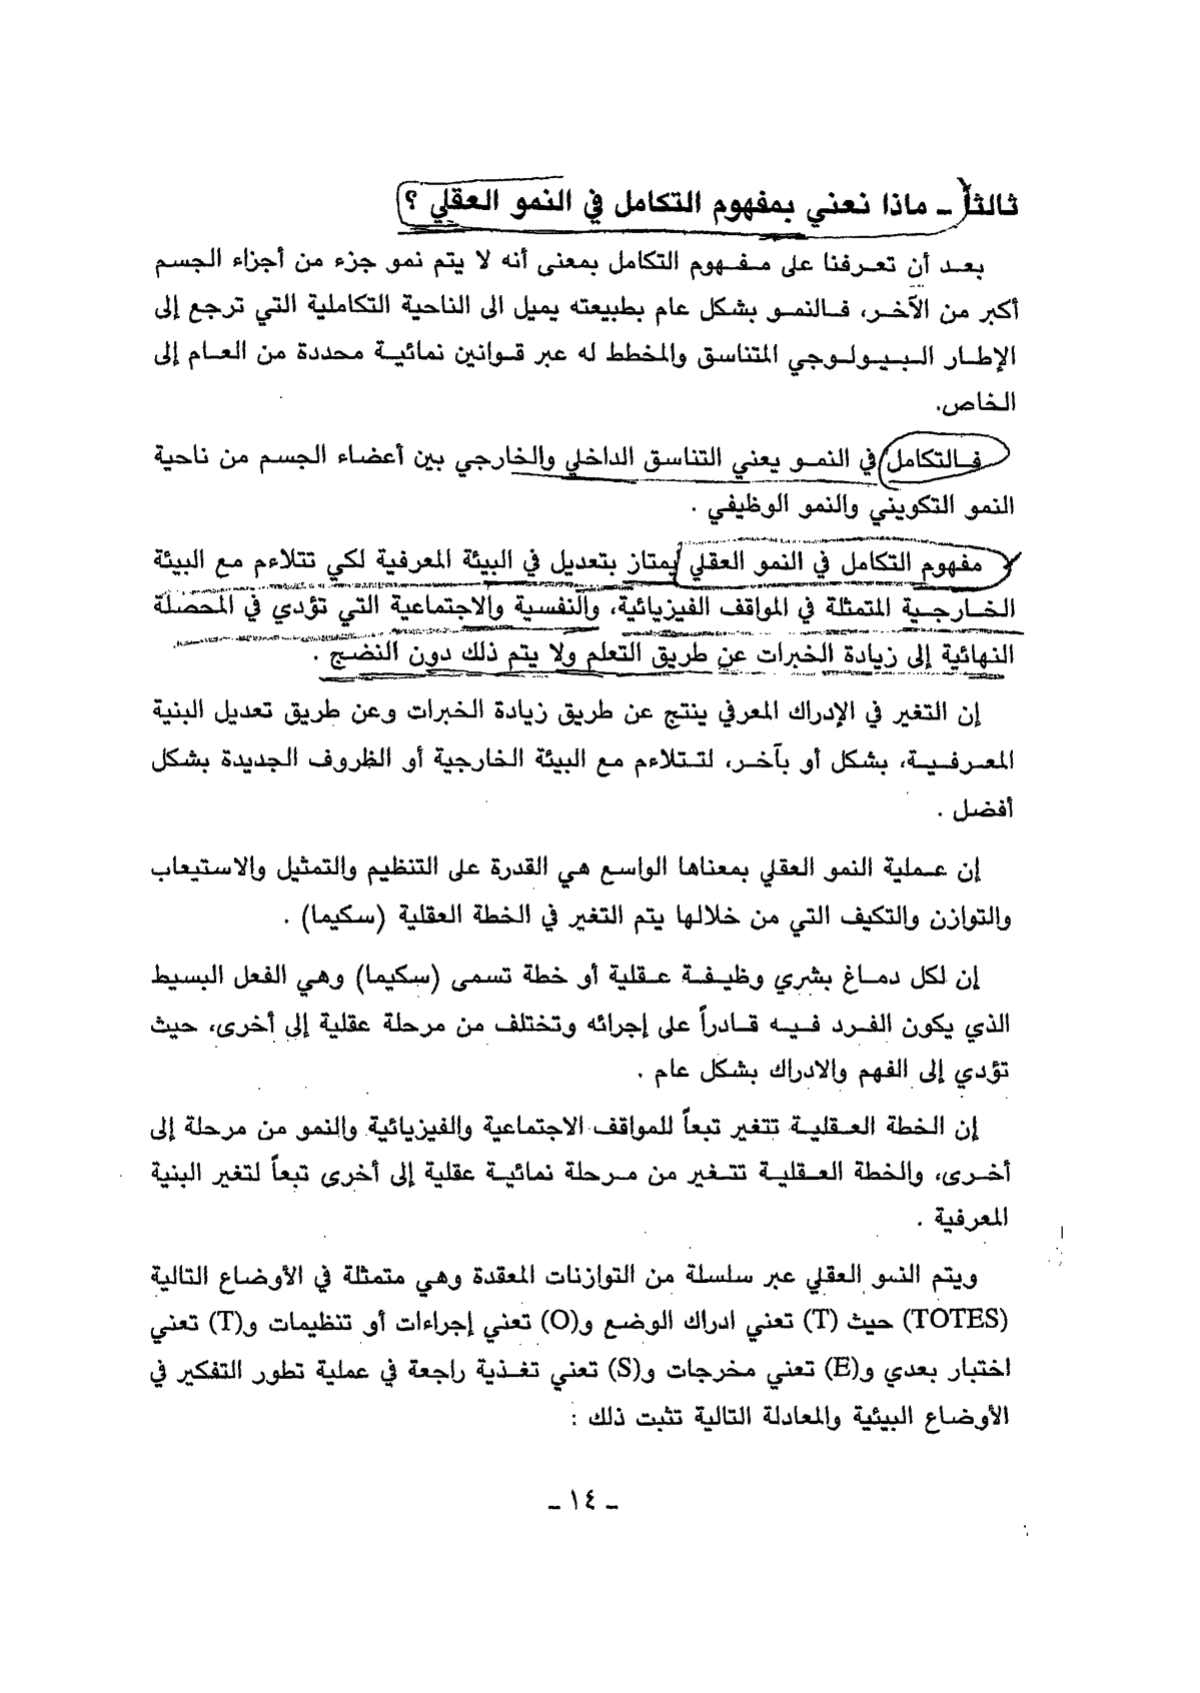 ثالثاً ـ ماذا نعني بمفهوم التكامل في النمو العقلي ؟
بعد أن تعرفنا على مفهوم التكامل بمعنى أنه لا يتم نمو جزء من أجزاء الجسم
أكبر من الآخر، فالنمو بشكل عام بطبيعته يميل الى الناحية التكاملية التي ترجع إلى
الإطار البيولوجي المتناسق والمخطط له عبر قوانين نمائية محددة من العام إلى
الخاص.
فالتكامل في النمو يعني التناسق الداخلي والخارجي بين أعضاء الجسم من ناحية
النمو التكويني والنمو الوظيفي .
مفهوم التكامل في النمو العقلي يمتاز بتعديل في البيئة المعرفية لكي تتلاءم مع البيئة
الخارجية المتمثلة في المواقف الفيزيائية، والنفسية والاجتماعية التي تؤدي في المحصلة
النهائية إلى زيادة الخبرات عن طريق التعلم ولا يتم ذلك دون النضج .
إن التغير في الإدراك المعرفي ينتج عن طريق زيادة الخبرات وعن طريق تعديل البنية
المعرفية، بشكل أو بآخر، لتتلاءم مع البيئة الخارجية أو الظروف الجديدة بشكل
أفضل .
إن عملية النمو العقلي بمعناها الواسع هي القدرة على التنظيم والتمثيل والاستيعاب
والتوازن والتكيف التي من خلالها يتم التغير في الخطة العقلية (سكيما) .
إن لكل دماغ بشري وظيفة عقلية أو خطة تسمى (سكيما) وهي الفعل البسيط
الذي يكون الفرد فيه قادراً على إجرائه وتختلف من مرحلة عقلية إلى أخرى، حيث
تؤدي إلى الفهم والادراك بشكل عام .
إن الخطة العقلية تتغير تبعاً للمواقف الاجتماعية والفيزيائية والنمو من مرحلة إلى
أخرى، والخطة العقلية تتغير من مرحلة نمائية عقلية إلى أخرى تبعاً لتغير البنية
المعرفية .
ويتم النمو العقلي عبر سلسلة من التوازنات المعقدة وهي متمثلة في الأوضاع التالية
(TOTES) حيث (T) تعني ادراك الوضع و(O) تعني إجراءات أو تنظيمات و(T) تعني
اختبار بعدي و(E) تعني مخرجات و(S) تعني تغذية راجعة في عملية تطور التفكير في
الأوضاع البيئية والمعادلة التالية تثبت ذلك :
ـ ١٤ ـ